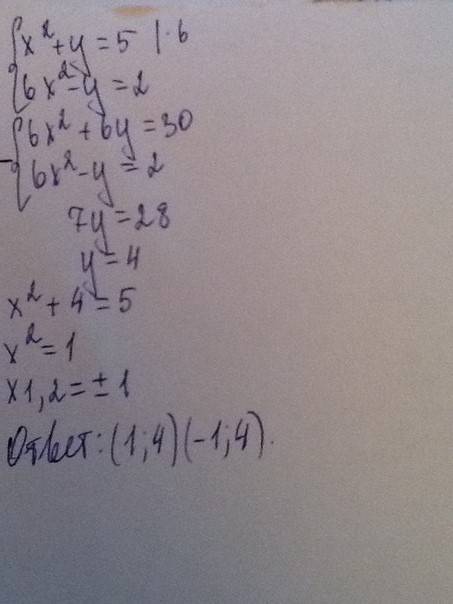 x² + y = 5 | · 6
6x² - y = 2
6x² + 6y = 30
- 6x² - y = 2
7y = 28
y = 4
x² + 4 = 5
x² = 1
x1,2 = ± 1
Ответ: (1;4) (-1;4).